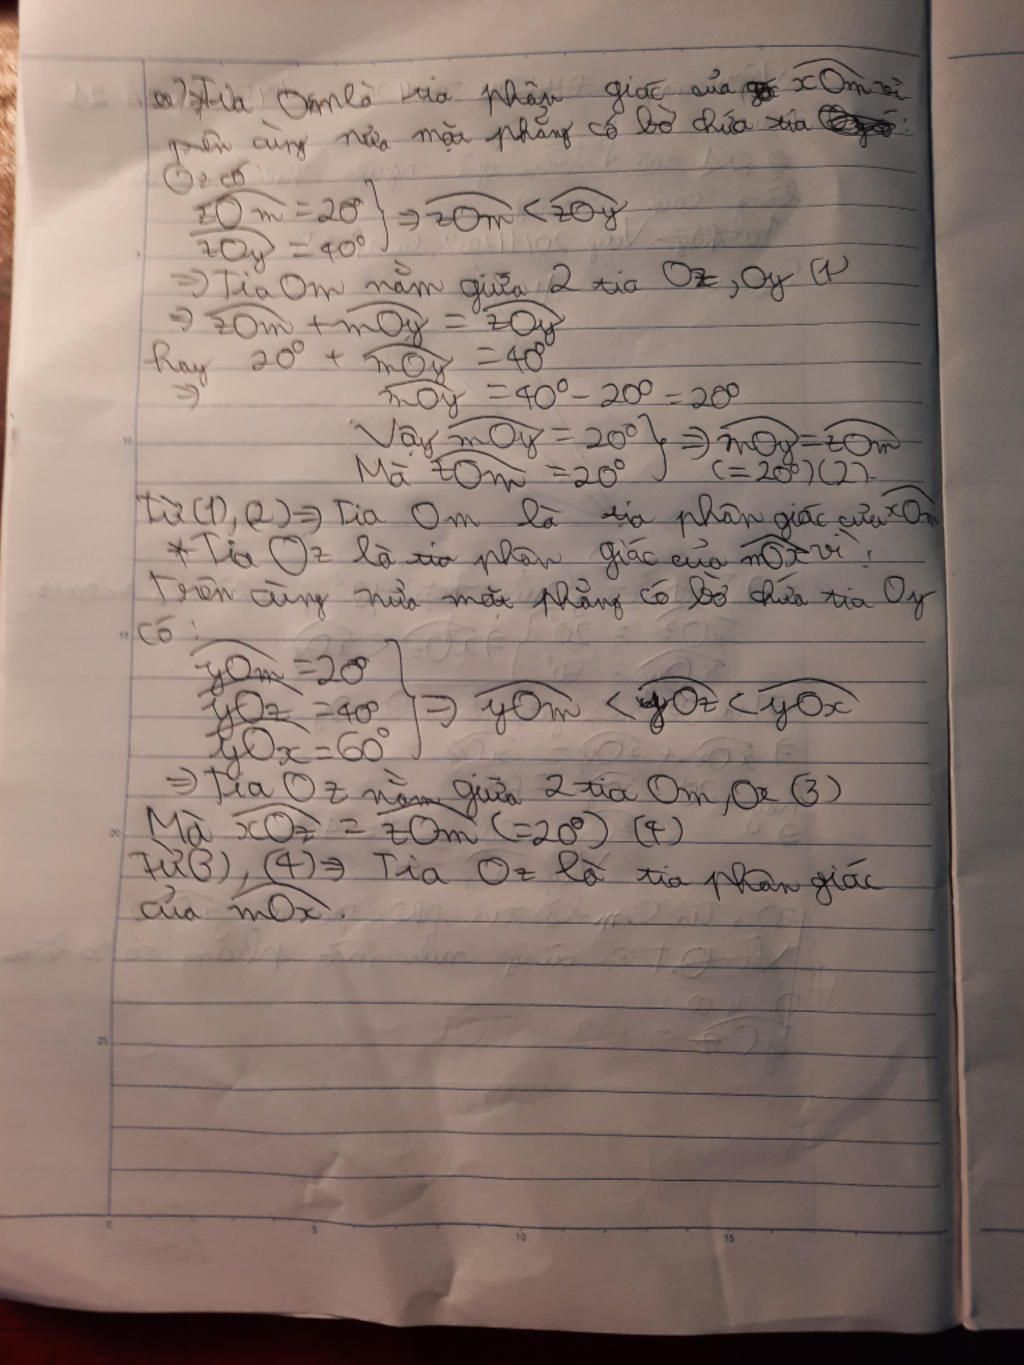 a) Tia Om là tia phân giác của xOm vì
trên cùng nửa mặt phẳng có bờ chứa tia
Oz có
zOm = 20°
zOy = 40° } ⇒ zOm < zOy
⇒ Tia Om nằm giữa 2 tia Oz, Oy (1)
⇒ zOm + mOy = zOy
hay 20° + mOy = 40°
⇒ mOy = 40° - 20° = 20°
Vậy mOy = 20° } ⇒ mOy = zOm
Mà zOm = 20° (= 20°) (2)
Từ (1), (2) ⇒ Tia Om là tia phân giác của xOm
* Tia Oz là tia phân giác của mOx vì:
Trên cùng nửa mặt phẳng có bờ chứa tia Oy
có:
yOm = 20°
yOz = 40° } ⇒ yOm < yOz < yOx
yOx = 60°
⇒ Tia Oz nằm giữa 2 tia Om, Ox (3)
Mà xOz = zOm (= 20°) (4)
Từ (3), (4) ⇒ Tia Oz là tia phân giác
của mOx.
10
15
20
25
0 5 10 15